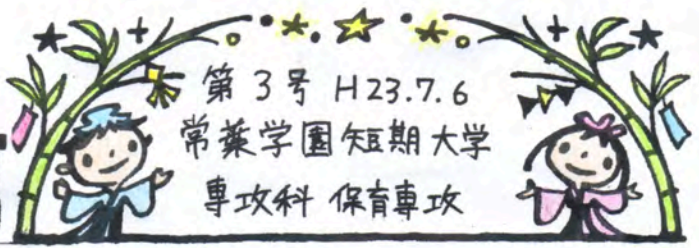 第3号 H23.7.6
常葉学園短期大学
専攻科 保育専攻